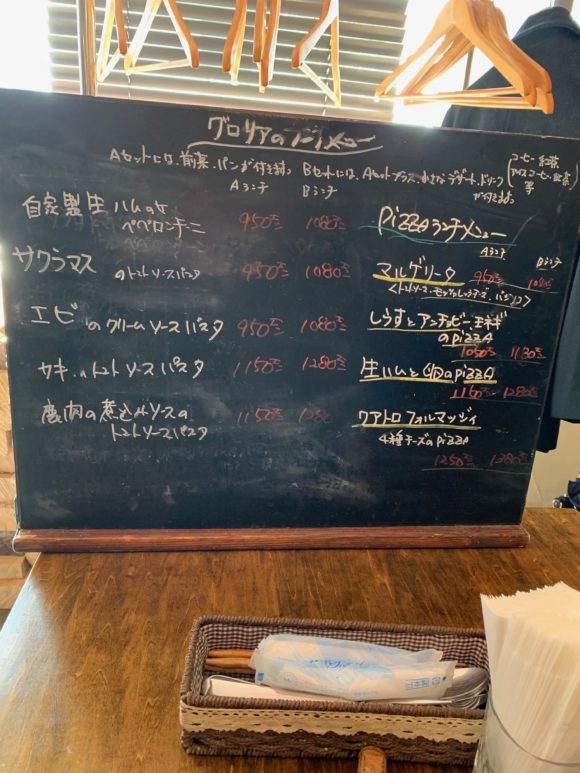 グロリアのランチメニュー
Aセットには、前菜、パンが付きます。
Bセットには、Aセットプラス、小さなデザート、ドリンクが付きます。
(コーヒー 紅茶
アイスコーヒー 紅茶
等)
Aランチ Bランチ
自家製生ハムのせ
ペペロンチーニ 950 1080
サクラマス
のトマトソースパスタ 950 1080
エビのクリームソースパスタ 950 1080
のトマトソースパスタ 1150 1280
鹿肉の煮込みソースの
トマトソースパスタ 1150 1280
PiZZAランチメニュー
Aランチ Bランチ
マルゲリータ 950 1080
<トマトソース、モッツァレラチーズ、バジリコ>
しらすとアンチョビー、玉ネギ
のPiZZA
1050 1180
生ハムと卵のPiZZA
1150 1280
クアトロフォルマッジィ
4種チーズのPiZZA
1250 1380